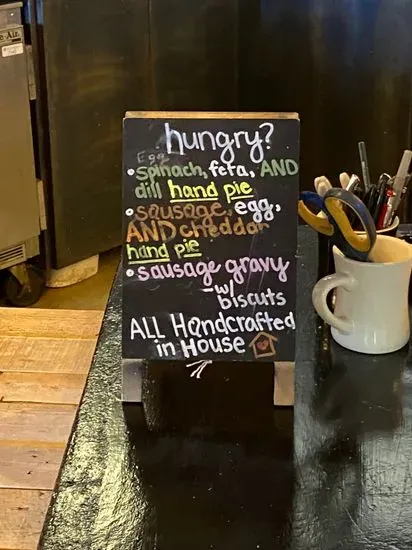 e-Air.
hungry?
Egg
• spinach, feta, AND
dill hand pie
• sausage, egg,
AND cheddar
hand pie
• sausage gravy
w/
biscuts
ALL Handcrafted
in House